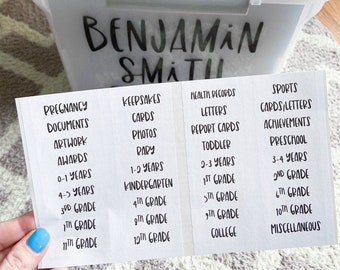 BENJAMIN
SMITH
PREGNANCY
DOCUMENTS
ARTWORK
AWARDS
0-1 YEARS
4-5 YEARS
3RD GRADE
7TH GRADE
11TH GRADE
KEEPSAKES
CARDS
PHOTOS
BABY
1-2 YEARS
KINDERGARTEN
4TH GRADE
8TH GRADE
12TH GRADE
HEALTH RECORDS
LETTERS
REPORT CARDS
TODDLER
2-3 YEARS
1ST GRADE
5TH GRADE
9TH GRADE
COLLEGE
SPORTS
CARDS/LETTERS
ACHIEVEMENTS
PRESCHOOL
3-4 YEARS
2ND GRADE
6TH GRADE
10TH GRADE
MISCELLANEOUS